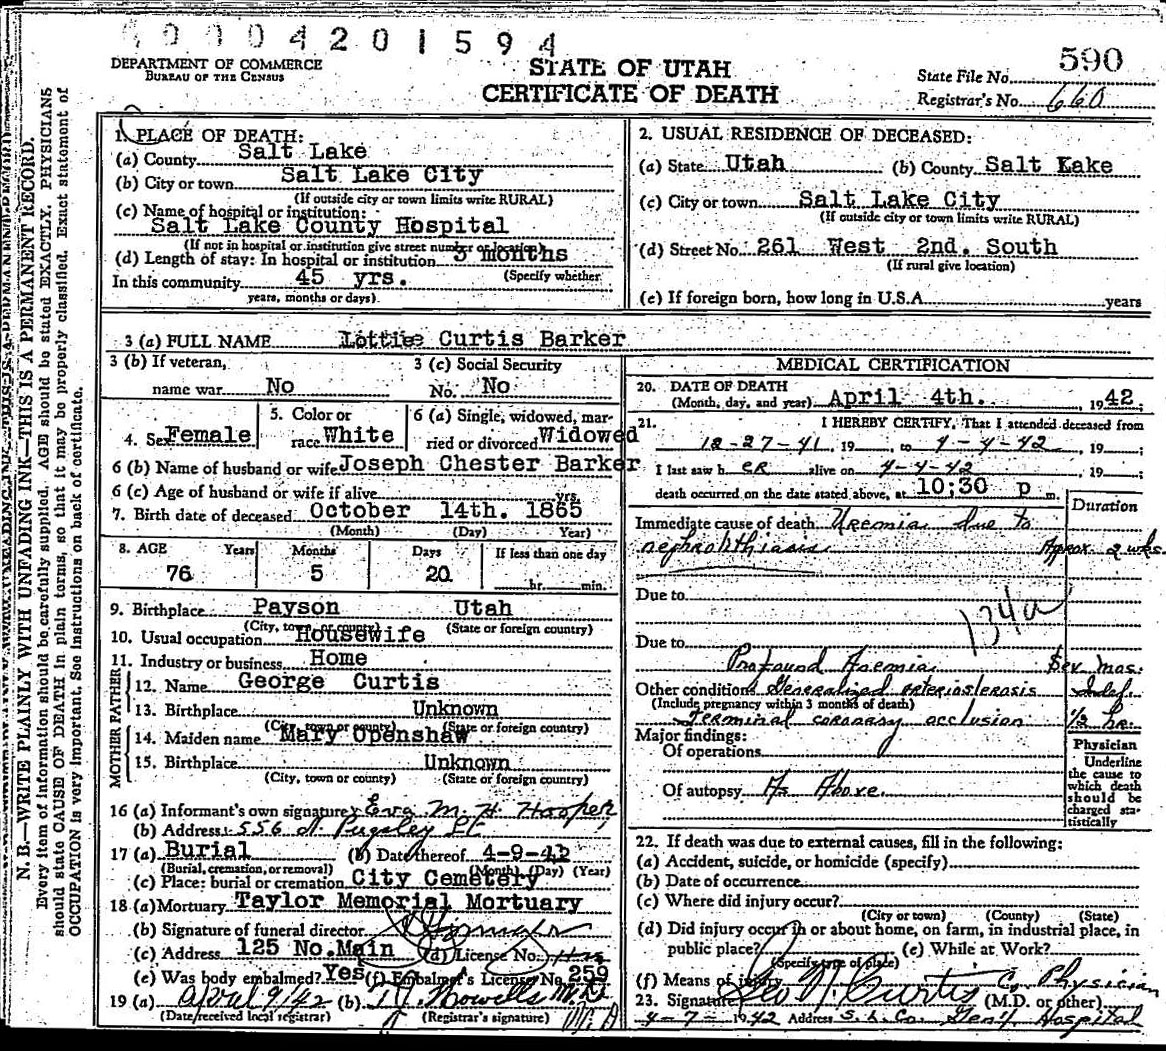 0004201594
590
DEPARTMENT OF COMMERCE
BUREAU OF THE CENSUS
STATE OF UTAH
CERTIFICATE OF DEATH
State File No.
Registrar's No. 660
N. B.—WRITE PLAINLY WITH UNFADING INK—THIS IS A PERMANENT RECORD.
Every item of information should be carefully supplied. AGE should be stated EXACTLY. PHYSICIANS
should state CAUSE OF DEATH in plain terms, so that it may be properly classified. Exact statement of
OCCUPATION is very important. See instructions on back of certificate.
1. PLACE OF DEATH:
(a) County Salt Lake
(b) City or town Salt Lake City
(If outside city or town limits write RURAL)
(c) Name of hospital or institution:
Salt Lake County Hospital
(If not in hospital or institution give street number or location)
(d) Length of stay: In hospital or institution 3 months
(Specify whether
In this community 45 yrs.
years, months or days)
2. USUAL RESIDENCE OF DECEASED:
(a) State Utah (b) County Salt Lake
(c) City or town Salt Lake City
(If outside city or town limits write RURAL)
(d) Street No. 261 West 2nd. South
(If rural give location)
(e) If foreign born, how long in U.S.A. years
3 (a) FULL NAME Lottie Curtis Barker
3 (b) If veteran,
name war No
3 (c) Social Security
No. No
4. Sex Female
5. Color or
race White
6 (a) Single, widowed, mar-
ried or divorced Widowed
6 (b) Name of husband or wife Joseph Chester Barker
6 (c) Age of husband or wife if alive yrs.
7. Birth date of deceased October 14th. 1865
(Month) (Day) Year)
8. AGE Years Months Days If less than one day
76 5 20 hr. min.
9. Birthplace Payson Utah
(City, town, or county) (State or foreign country)
10. Usual occupation Housewife
11. Industry or business Home
FATHER
12. Name George Curtis
13. Birthplace Unknown
(City, town or county) (State or foreign country)
MOTHER
14. Maiden name Mary Openshaw
15. Birthplace Unknown
(City, town or county) (State or foreign country)
16 (a) Informant's own signature Eva M. H. Hooper
(b) Address: 556 N. Pugsley St
17 (a) Burial (b) Date thereof 4-9-42
(Burial, cremation, or removal) (Month) (Day) (Year)
(c) Place: burial or cremation City Cemetery
18 (a) Mortuary Taylor Memorial Mortuary
(b) Signature of funeral director
(c) Address 125 No. Main (d) License No.
(e) Was body embalmed? Yes (f) Embalmer's License No. 259
19 (a) April 9/42 (b) T. J. Howells M.D.
(Date received local registrar) (Registrar's signature)
MEDICAL CERTIFICATION
20. DATE OF DEATH
(Month, day, and year) April 4th. , 1942.
21. I HEREBY CERTIFY, That I attended deceased from
12-27-41, 19 , to 4-4-42, 19 ;
I last saw h er alive on 4-4-42, 19 ;
death occurred on the date stated above, at 10:30 p m.
Duration
Immediate cause of death Uremia due to
nephrolithiasis Aprox. 2 wks.
Due to
134a
Due to
Profound Anemia Sev. mos.
Other conditions Generalized arteriosclerosis Indef.
(Include pregnancy within 3 months of death)
Terminal coronary occlusion 1/2 hr.
Major findings:
Of operations
Of autopsy As Above
Physician
Underline
the cause to
which death
should be
charged sta-
tistically
22. If death was due to external causes, fill in the following:
(a) Accident, suicide, or homicide (specify)
(b) Date of occurrence
(c) Where did injury occur?
(City or town) (County) (State)
(d) Did injury occur in or about home, on farm, in industrial place, in
public place? (e) While at Work?
(Specify type of place)
(f) Means of injury
23. Signature Geo N. Curtis Co. Physician
(M.D. or other)
4-7-1942 Address S. L. Co. Gen'l Hospital